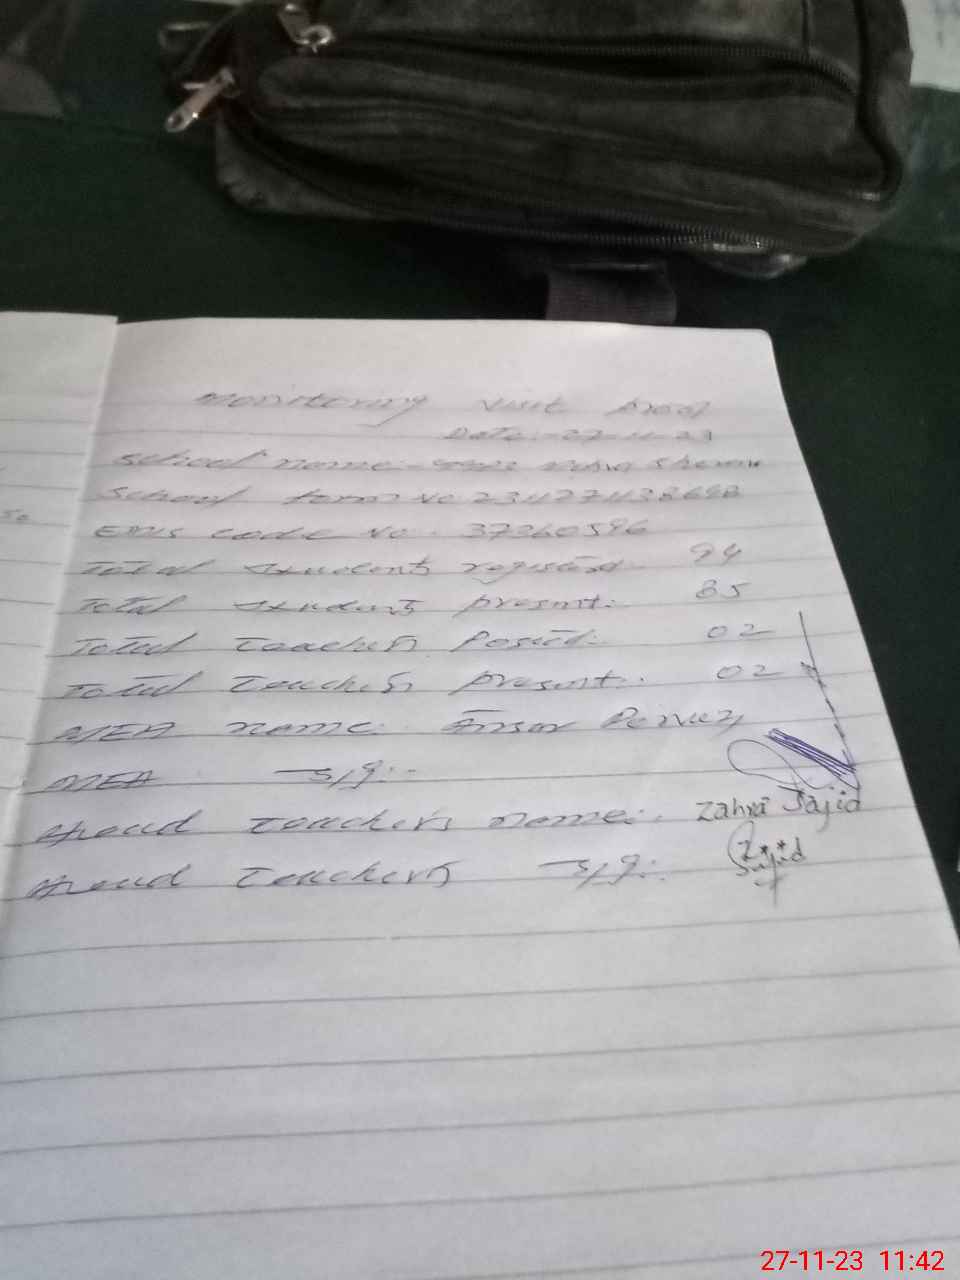 Monitoring visit proof
Date:- 27-11-23
School name:- Sharif
School form No 231127113869B
EMIS code No. 37360596
Total students registered. 94
Total students present:. 85
Total teachers Posted:. 02
Total teachers present:. 02
MEA name:. Pervez
MEA sig:.
Head teachers name:. Zahra Sajid
Head Teachers sig:. Sajid
27-11-23 11:42